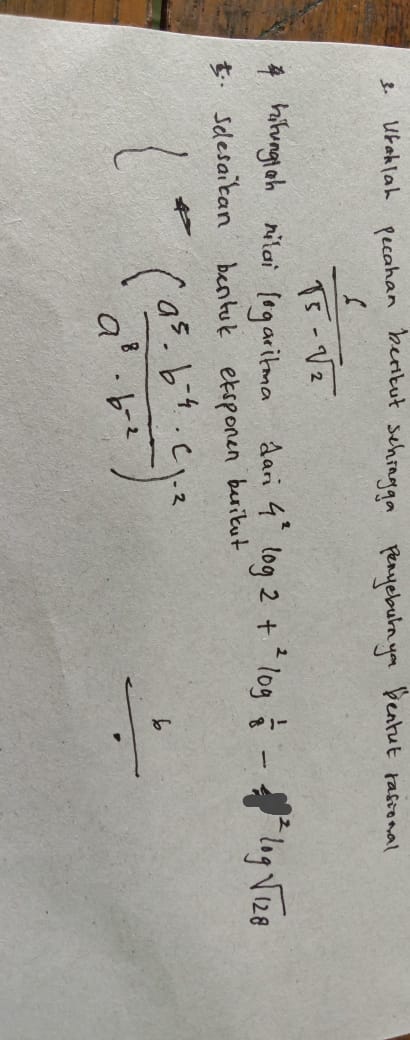 3. Ubahlah pecahan berikut sehingga penyebutnya bentuk rasional
6/(√5 - √2)
4 hitunglah nilai logaritma dari 4 ²log 2 + ²log 1/8 - ²log √128
5. Selesaikan bentuk eksponen berikut
( (a⁵ · b⁻⁴ · c)/(a⁸ · b⁻²) )⁻²
b